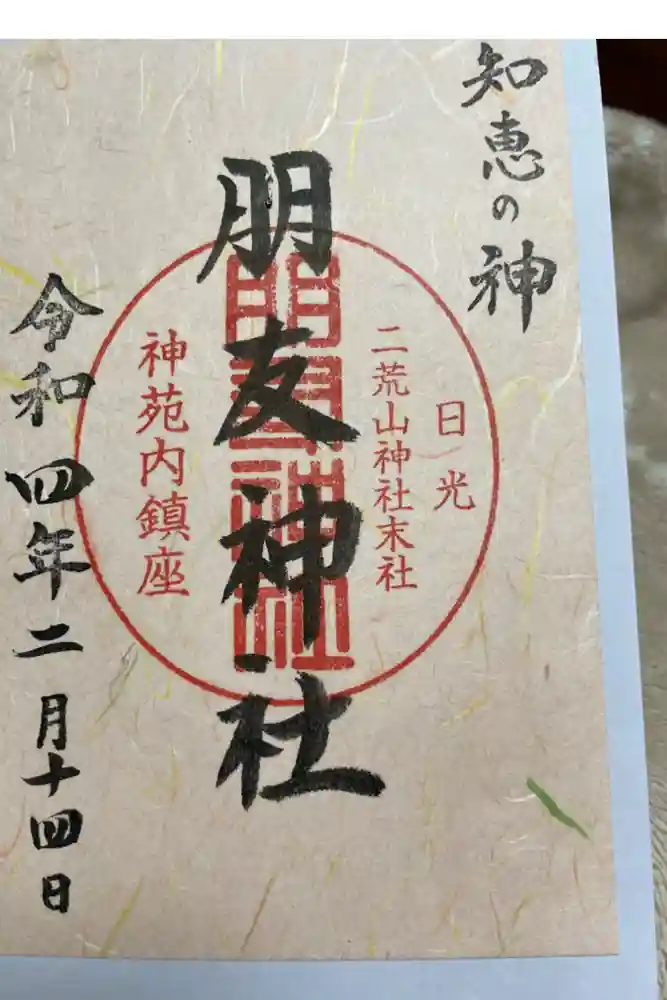 知恵の神
日光
二荒山神社末社
朋友神社
朋友神社
神苑内鎮座
令和四年二月十四日